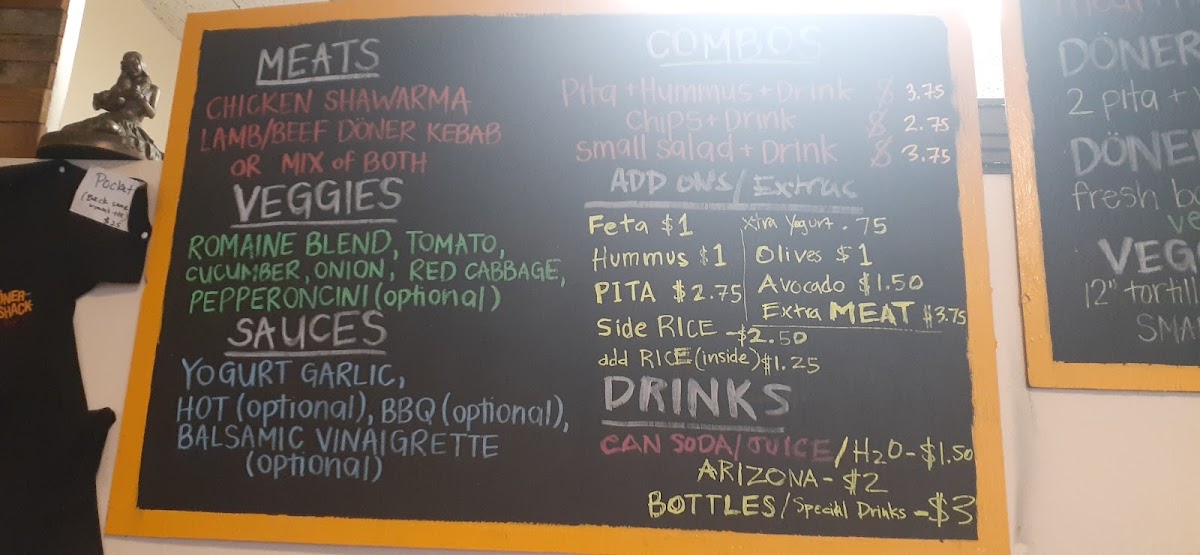 MEATS
CHICKEN SHAWARMA
LAMB/BEEF DÖNER KEBAB
OR MIX of BOTH
VEGGIES
ROMAINE BLEND, TOMATO,
CUCUMBER, ONION, RED CABBAGE,
PEPPERONCINI (optional)
SAUCES
YOGURT GARLIC,
HOT (optional), BBQ (optional),
BALSAMIC VINAIGRETTE
(optional)
COMBOS
Pita + Hummus + Drink $ 3.75
Chips + Drink $ 2.75
Small Salad + Drink $ 3.75
ADD ONS/Extras
Feta $1
Hummus $1
PITA $2.75
Side RICE - $2.50
add RICE (inside) $1.25
Xtra Yogurt .75
Olives $1
Avocado $1.50
Extra MEAT $3.75
DRINKS
CAN SODA/JUICE/H2O - $1.50
ARIZONA - $2
BOTTLES/Special Drinks - $3
Pocket
$25
SHACK
DÖNER
2 pita +
DÖNE
fresh
VEG
12" tortil
SMA